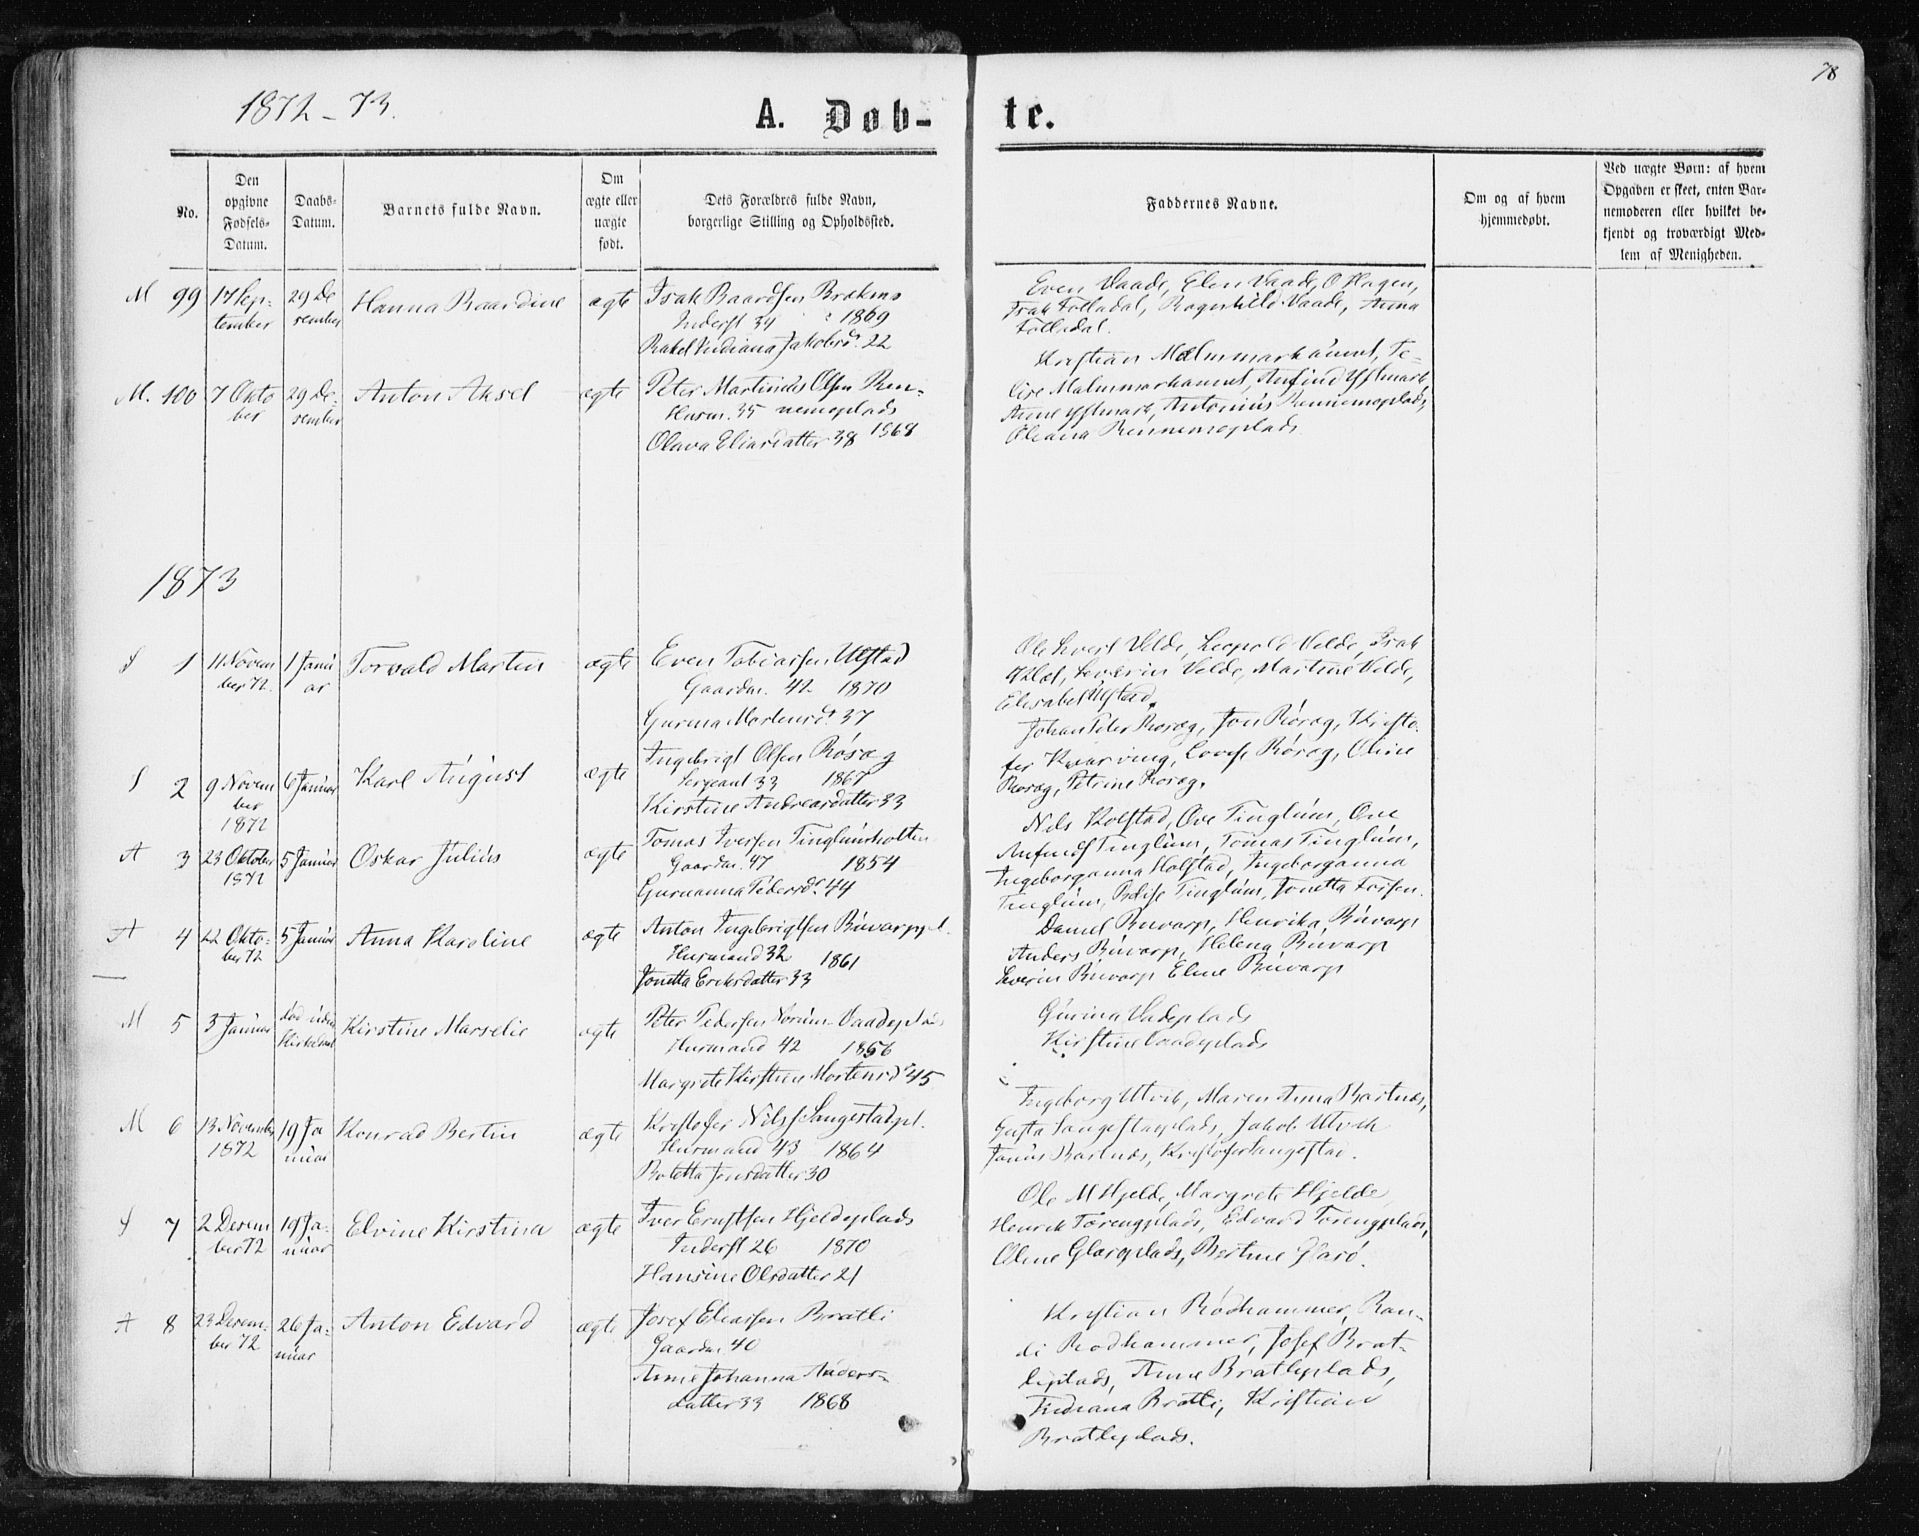 78
1872-73.
A. Døb-
te.
No.
Den
opgivne
Fødsels-
Datum.
Daabs-
Datum.
Barnets fulde Navn.
Om
ægte eller
uægte
født.
Dets Forældres fulde Navn,
borgerlige Stilling og Opholdssted.
Faddernes Navne.
Om og af hvem
hjemmedøbt.
Ved uægte Børn: af hvem
Opgaven er skeet, enten Bar-
nemoderen eller hvilket be-
kjendt og troværdigt Med-
lem af Menigheden.
M 99
17 Sep-
tember
29 De
sember
Hanna Baardine
ægte
Isak Baardsen
Inderst 34 1869
Rakel Indiana Jakobsd. 22
Even Vaade, Elen Vaade, O Hagen,
Isak Folladal, Ragnhild Vaade, Anna
Folladal.
M. 100
7 Okto
ber
29 De-
sember
Anton Aksel
ægte
Peter Martinus Olsen Ren-
Husm. 35 nemsplads
Olava Eliasdatter 38 1868
Kristian Malmmarkaunet,
Malmmarkaunet, Anfind
Anne Antonius Rennemsplads,
Oleana Rennemsplads.
1873
S 1
11 Novem
ber 72
1 Janu
ar
Torvald Martin
ægte
Even Tobiassen Ulstad
Gaardm. 42 1870
Gurina Mortensd. 37
Ole Velde, Leopold Velde, Isak
Severin Velde, Martine Velde,
Elisabet Ulstad.
S 2
9 Novem
ber
1872
6 Januar
Karl August
ægte
Ingebrigt Olsen Røsæg
Sergeant 33 1867
Kirstine Andreasdatter 33
Johan Peter Røsæg, Jon Røsæg, Kristo-
fer Kvarving, Lovise Røsæg, Oline
Røsæg, Petrine Røsæg.
A 3
23 Oktober
1872
5 Januar
Oskar Julius
ægte
Tomas Iversen Tinglumholten
Gaardm. 47 1854
Gurianna Pedersd. 44
Nils Kolstad, Ove Tinglum, Ove
Anfinds Tinglum, Tomas Tinglum,
Ingeborganna Holstad, Ingeborganna
Tinglum, Tinglum, Jonetta
A 4
22 Okto-
ber 72
5 Januar
Anna Karoline
ægte
Anton Ingebrigtsen Buvarppl.
Husmand 32 1861
Jonetta Eriksdatter 33
Daniel Buvarp, Henrika Buvarp
Anders Buvarp, Helena Buvarp
Severin Buvarp Buvarp
M 5
3 Januar
død uden
Kirkedaab
Kirstine Marselie
ægte
Peter Pedersen Norum-Vaadeplads
Husmand 42 1856
Margrete Kirstine Mortensd. 45
Gurina Vadeplads
Kirstine Vaadeplads
M 6
13 November
1872
19 Ja
nuar
Konrad Bertin
ægte
Kristofer Nils. Langestadpl.
Husmand 43 1864
Boletta Jonsdatter 30
Ingeborg Utvik, Maren Anna Bartnes,
Gusta Langestadplads, Jakob Utvik
Janus Bartnæs, Kristofer Langestad.
S 7
2 Desem
ber 72
19 Ja-
nuar
Elvine Kirstina
ægte
Iver Ernstsen Hjeldeplads
Inderst 26 1870
Hansine Olsdatter 21
Ole M Hjelde, Margrete Hjelde
Henrik Torengplads, Edvard Torengplads,
Oline Glarøplads, Bertine Glarø.
A 8
23 Desem-
ber 72
26 Ja-
nuar
Anton Edvard
ægte
Josef Eliassen Bratli
Gaardm. 40
Anne Johanna Anders-
datter 33 1868
Kristian Rødhammer, Ran-
di Rødhammer, Josef Brat-
liplads, Anne Bratliplads,
Indiana Bratli, Kristian
Bratliplads.